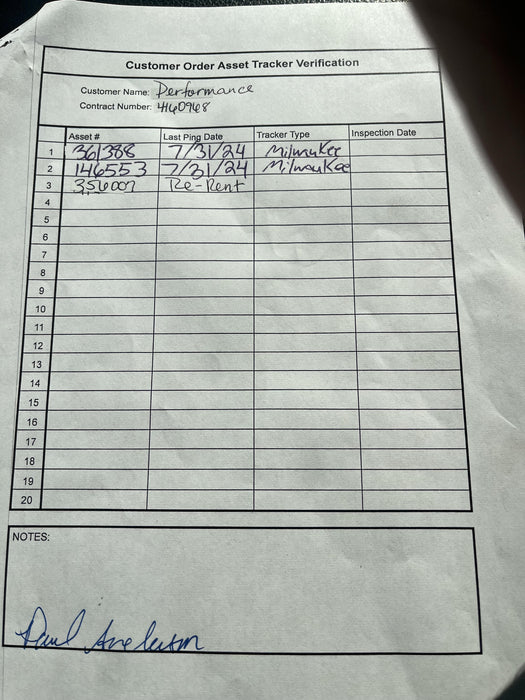 Customer Order Asset Tracker Verification
Customer Name: Performance
Contract Number: 4160968
Asset # Last Ping Date Tracker Type Inspection Date
1 361388 7/31/24 Milwaukee
2 146553 7/31/24 Milwaukee
3 356007 Re-Rent
4
5
6
7
8
9
10
11
12
13
14
15
16
17
18
19
20
NOTES:
Paul